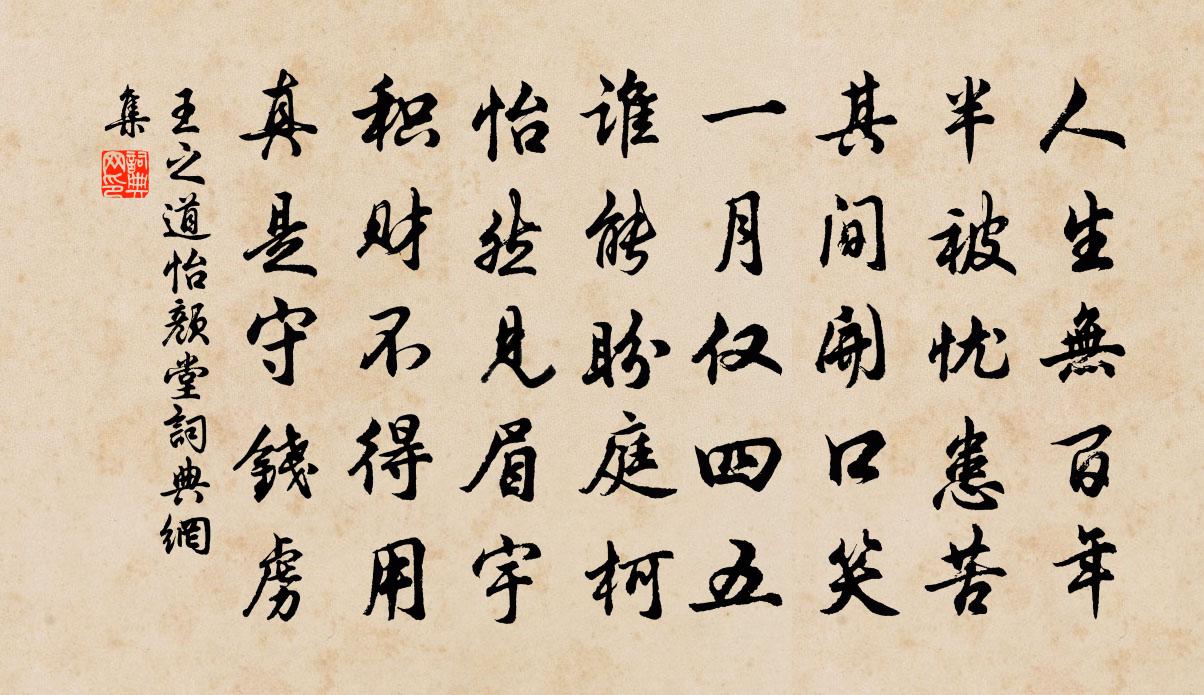 人生無百年
半被忧患苦
其间開口笑
一月仅四五
谁能盼庭柯
怡然见眉宇
积财不得用
真是守錢虏
王之道怡颜堂詞典網
集
詞典网印